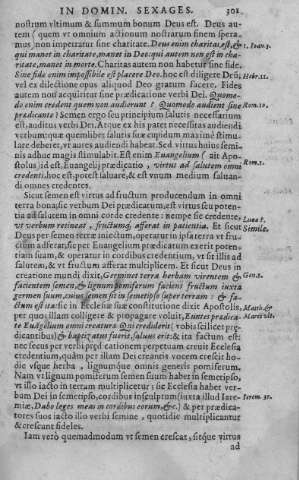 IN DOMIN. SEXAGES. 301
nostrum vltimum & summum bonum Deus est. Deus au-
tem (quem vt omnium actionum nostrarum finem spera-
mus) non impetratur sine charitate. Deus enim charitas est, & 1. Ioan. 3.
qui manet in charitate, manet in Deo: qui autem non est in cha-
ritate, manet in morte. Charitas autem non habetur sine fide.
Sine fide enim impossibile est placere Deo, hoc est diligere Deũ, Hebr. 11.
vel ex dilectione opus aliquod Deo gratum facere. Fides
autem non acquiritur sine prædicatione verbi Dei. Quomo-
do enim credent quem non audierunt? Quomodo audient sine Rom. 10.
prædicante? Semen ergo seu principium salutis necessarium
est, auditus verbi Dei. Atque ex his patet necessitas audiendi
verbum: quæ omnibus salutis suæ cupidum maximè stimu-
lare deberet, vt aures audiendi habeat. Sed virtus huius semi-
nis adhuc magis stimulabit. Est enim Euangelium (ait Apo-
stolus, id est Euangelij prædicatio, virtus ad salutem omni Rom. 1.
credenti, hoc est, potest saluare, & est vnum medium saluan-
di omnes credentes.
Sicut semen est virtus ad fructum producendum in omni
terra bona, sic verbum Dei prædicatum, est virtus seu poten-
tia ad salutem in omni corde credente: nempe sic credente, Luca 8.
vt verbum retineat, fructumq; afferat in patientia. Et sicut Simile.
Deus per semen terræ iniectum, operatur in ipsa terra vt fru-
ctum adferat, sic per Euangelium prædicatum exerit poten-
tiam suam, & operatur in cordibus credentium, vt sit illis ad
salutem, & vt fructum afferat multiplicem. Et sicut Deus in
creatione mundi dixit, Germinet terra herbam virentem & Gen. 1.
facientem semen, & lignum pomiferum faciens fructum iuxta
germen suum, cuius semen sit in semetipso super terram: & fa-
ctum est ita: sic in Ecclesiæ suæ constitutione dixit Apostolis, Matth. &
per quos illam colligere & propagare voluit, Euntes prædica- Marci vlt.
te Euãgelium omni creaturæ Qui crediderit (vobis scilicet præ-
dicantibus) & baptizatus fuerit, saluus erit: & ita factum est:
nec secus per verbi prædicationem perpetuam creuit Ecclesia
credentium, quàm per illam Dei creantis vocem crescit ho-
die vsque herba, lignumque omnis generis pomiferum.
Nam vt lignum pomiferum semen suum habet in semetipso,
vt illo iacto in terram multiplicetur; sic Ecclesia habet ver-
bum Dei in semetipso, cordibus insculptum (iuxta illud Iere-
miæ, Dabo leges meas in cordibus eorum, &c.) & per prædica- Ierem. 31.
tores suos iacto illo verbi semine, quotidie multiplicantur
& crescunt fideles.
Iam verò quemadmodum vt semen crescat, sitque virtus
ad